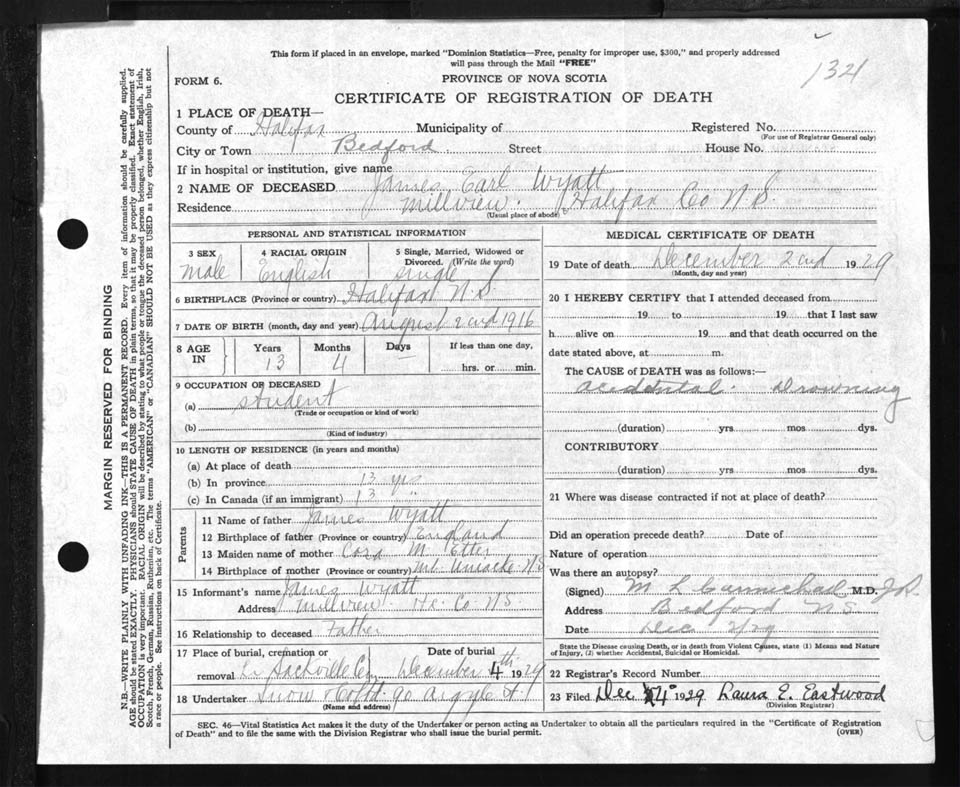 This form if placed in an envelope, marked "Dominion Statistics—Free, penalty for improper use, $300," and properly addressed
will pass through the Mail "FREE"
1321
FORM 6.
PROVINCE OF NOVA SCOTIA
CERTIFICATE OF REGISTRATION OF DEATH
1 PLACE OF DEATH—
County of Halifax Municipality of Registered No.
(For use of Registrar General only)
City or Town Bedford Street House No.
If in hospital or institution, give name
2 NAME OF DECEASED James Earl Wyatt
Residence Millview. Halifax Co N.S.
(Usual place of abode)
PERSONAL AND STATISTICAL INFORMATION
3 SEX 4 RACIAL ORIGIN 5 Single, Married, Widowed or
Divorced. (Write the word)
Male English single
6 BIRTHPLACE (Province or country) Halifax N.S.
7 DATE OF BIRTH (month, day and year) August 2nd 1916
8 AGE IN Years Months Days If less than one day,
13 4 — hrs. or min.
9 OCCUPATION OF DECEASED
(a) student
(Trade or occupation or kind of work)
(b)
(Kind of industry)
10 LENGTH OF RESIDENCE (in years and months)
(a) At place of death
(b) In province 13 yrs
(c) In Canada (if an immigrant) 13 "
Parents
11 Name of father James Wyatt
12 Birthplace of father (Province or country) England
13 Maiden name of mother Cora M. Etter
14 Birthplace of mother (Province or country) Mt Uniacke N.S
15 Informant's name James Wyatt
Address Millview Hx. Co. N.S.
16 Relationship to deceased Father
17 Place of burial, cremation or Date of burial
removal Lr Sackville Cem December 4th 1929
18 Undertaker Snow & Co Ltd. 90 Argyle St.
(Name and address)
MEDICAL CERTIFICATE OF DEATH
19 Date of death December 2nd 1929
(Month, day and year)
20 I HEREBY CERTIFY that I attended deceased from
19 to 19 that I last saw
h alive on 19 and that death occurred on the
date stated above, at m.
The CAUSE of DEATH was as follows:—
Acidental Drowning
(duration) yrs mos dys.
CONTRIBUTORY
(duration) yrs mos dys.
21 Where was disease contracted if not at place of death?
Did an operation precede death? Date of
Nature of operation
Was there an autopsy?
(Signed) M L M.D.
Address Bedford N.S.
Date Dec
State the Disease causing Death, or in death from Violent Causes, state (1) Means and Nature
of Injury, (2) whether Accidental, Suicidal or Homicidal.
22 Registrar's Record Number
23 Filed Dec 4 1929 Laura E. Eastwood
(Division Registrar)
SEC. 46—Vital Statistics Act makes it the duty of the Undertaker or person acting as Undertaker to obtain all the particulars required in the "Certificate of Registration
of Death" and to file the same with the Division Registrar who shall issue the burial permit.
(OVER)
MARGIN RESERVED FOR BINDING
N.B.—WRITE PLAINLY WITH UNFADING INK—THIS IS A PERMANENT RECORD. Every item of information should be carefully supplied.
AGE should be stated EXACTLY. PHYSICIANS should STATE CAUSE OF DEATH in plain terms, so that it may be properly classified. Exact statement of
OCCUPATION is very important. RACIAL ORIGIN will be described by stating to what people or tongue the deceased person belonged, whether English, Irish,
Scotch, French, German, Russian, Ruthenian, etc. The terms "AMERICAN" or "CANADIAN" SHOULD NOT BE USED as they express citizenship but not
a race or people. See instructions on back of Certificate.